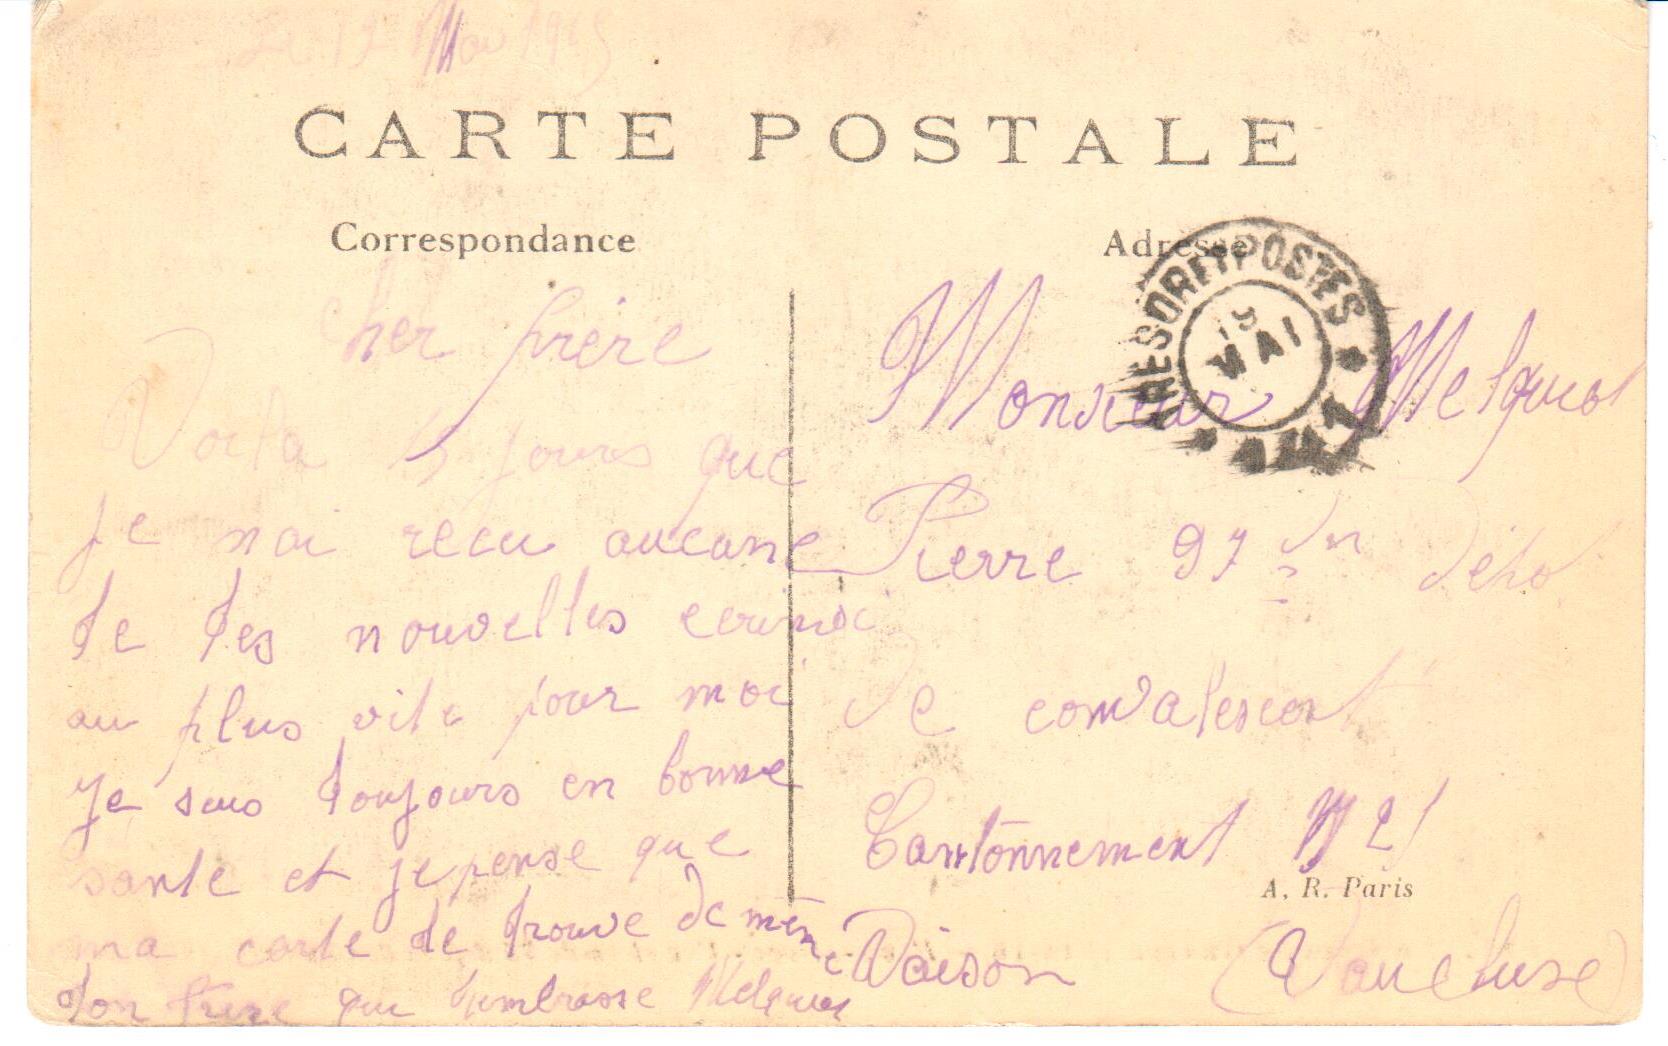 Le 19 Mai 1915
CARTE POSTALE
Correspondance
Cher frère
Voila 15 jours que
je nai recu aucune
de tes nouvelles ecrimoi
au plus vite pour moi
je suis toujours en bonne
sante et je pense que
ma carte te trouve de même
ton frere qui tembrasse Melquiot
Adresse
TRESOR ET POSTES
19
MAI
Monsieur Melquiot
Pierre 97 Dépo
de convalescent
Cantonnement N 21
A. R. Paris
Vaison (Vaucluse)